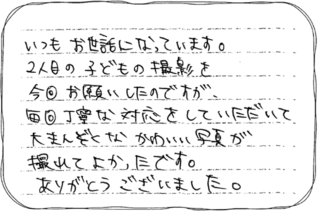 いつも お世話になっています。
2人目の 子どもの 撮影を
今回 お願いしたのですが、
毎回 丁寧な 対応を していただいて
大まんぞくな かわいい 写真が
撮れて よかったです。
ありがとう ございました。